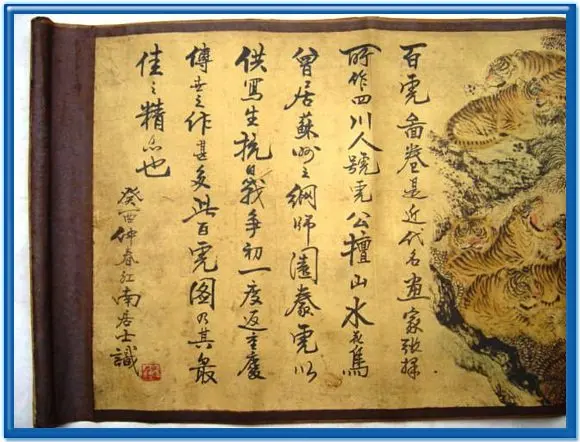 百虎啚卷是近代名畫家张择
所作四川人號虎公擅山水花鳥
曾居蘇州之網師園豢虎以
供寫生抗日戰爭初一度返重慶
傳世之作甚多此百虎图乃其最
佳之精品也
癸酉仲春江南居士識